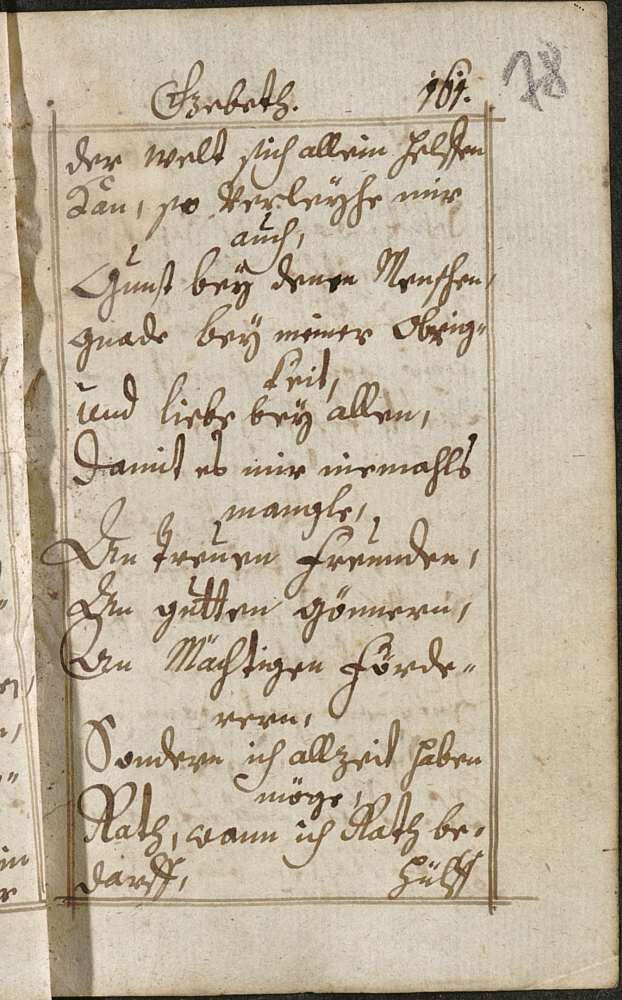 Gebeth. 161.
78
der welt sich allein helffen
Kan, so Verleyhe mir
auch,
Gunst bey denen Menschen,
gnade bey meiner Obrig-
keit,
und liebe bey allen,
damit es mir niemahls
mangle,
An treuen Freunden,
An gutten gönnern,
An Mächtigen Förde-
rern,
Sondern ich allzeit haben
möge,
Rath, wann ich Rath be-
darff, Hülff